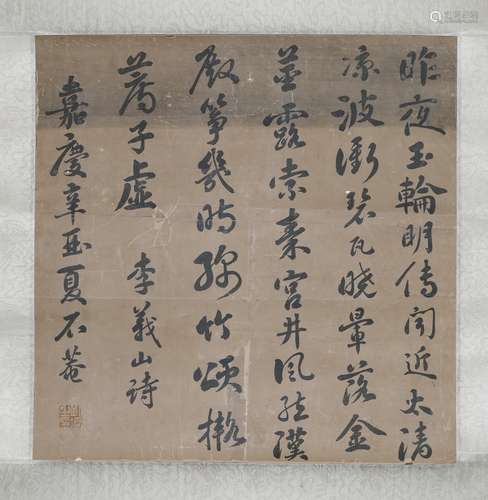 昨夜玉輪明傳聞近太清
凉波衝碧瓦曉暈落金
莖露索秦宮井風弦漢
殿箏幾時綿竹頌擬
薦子虛 李義山詩
嘉慶辛酉夏石菴